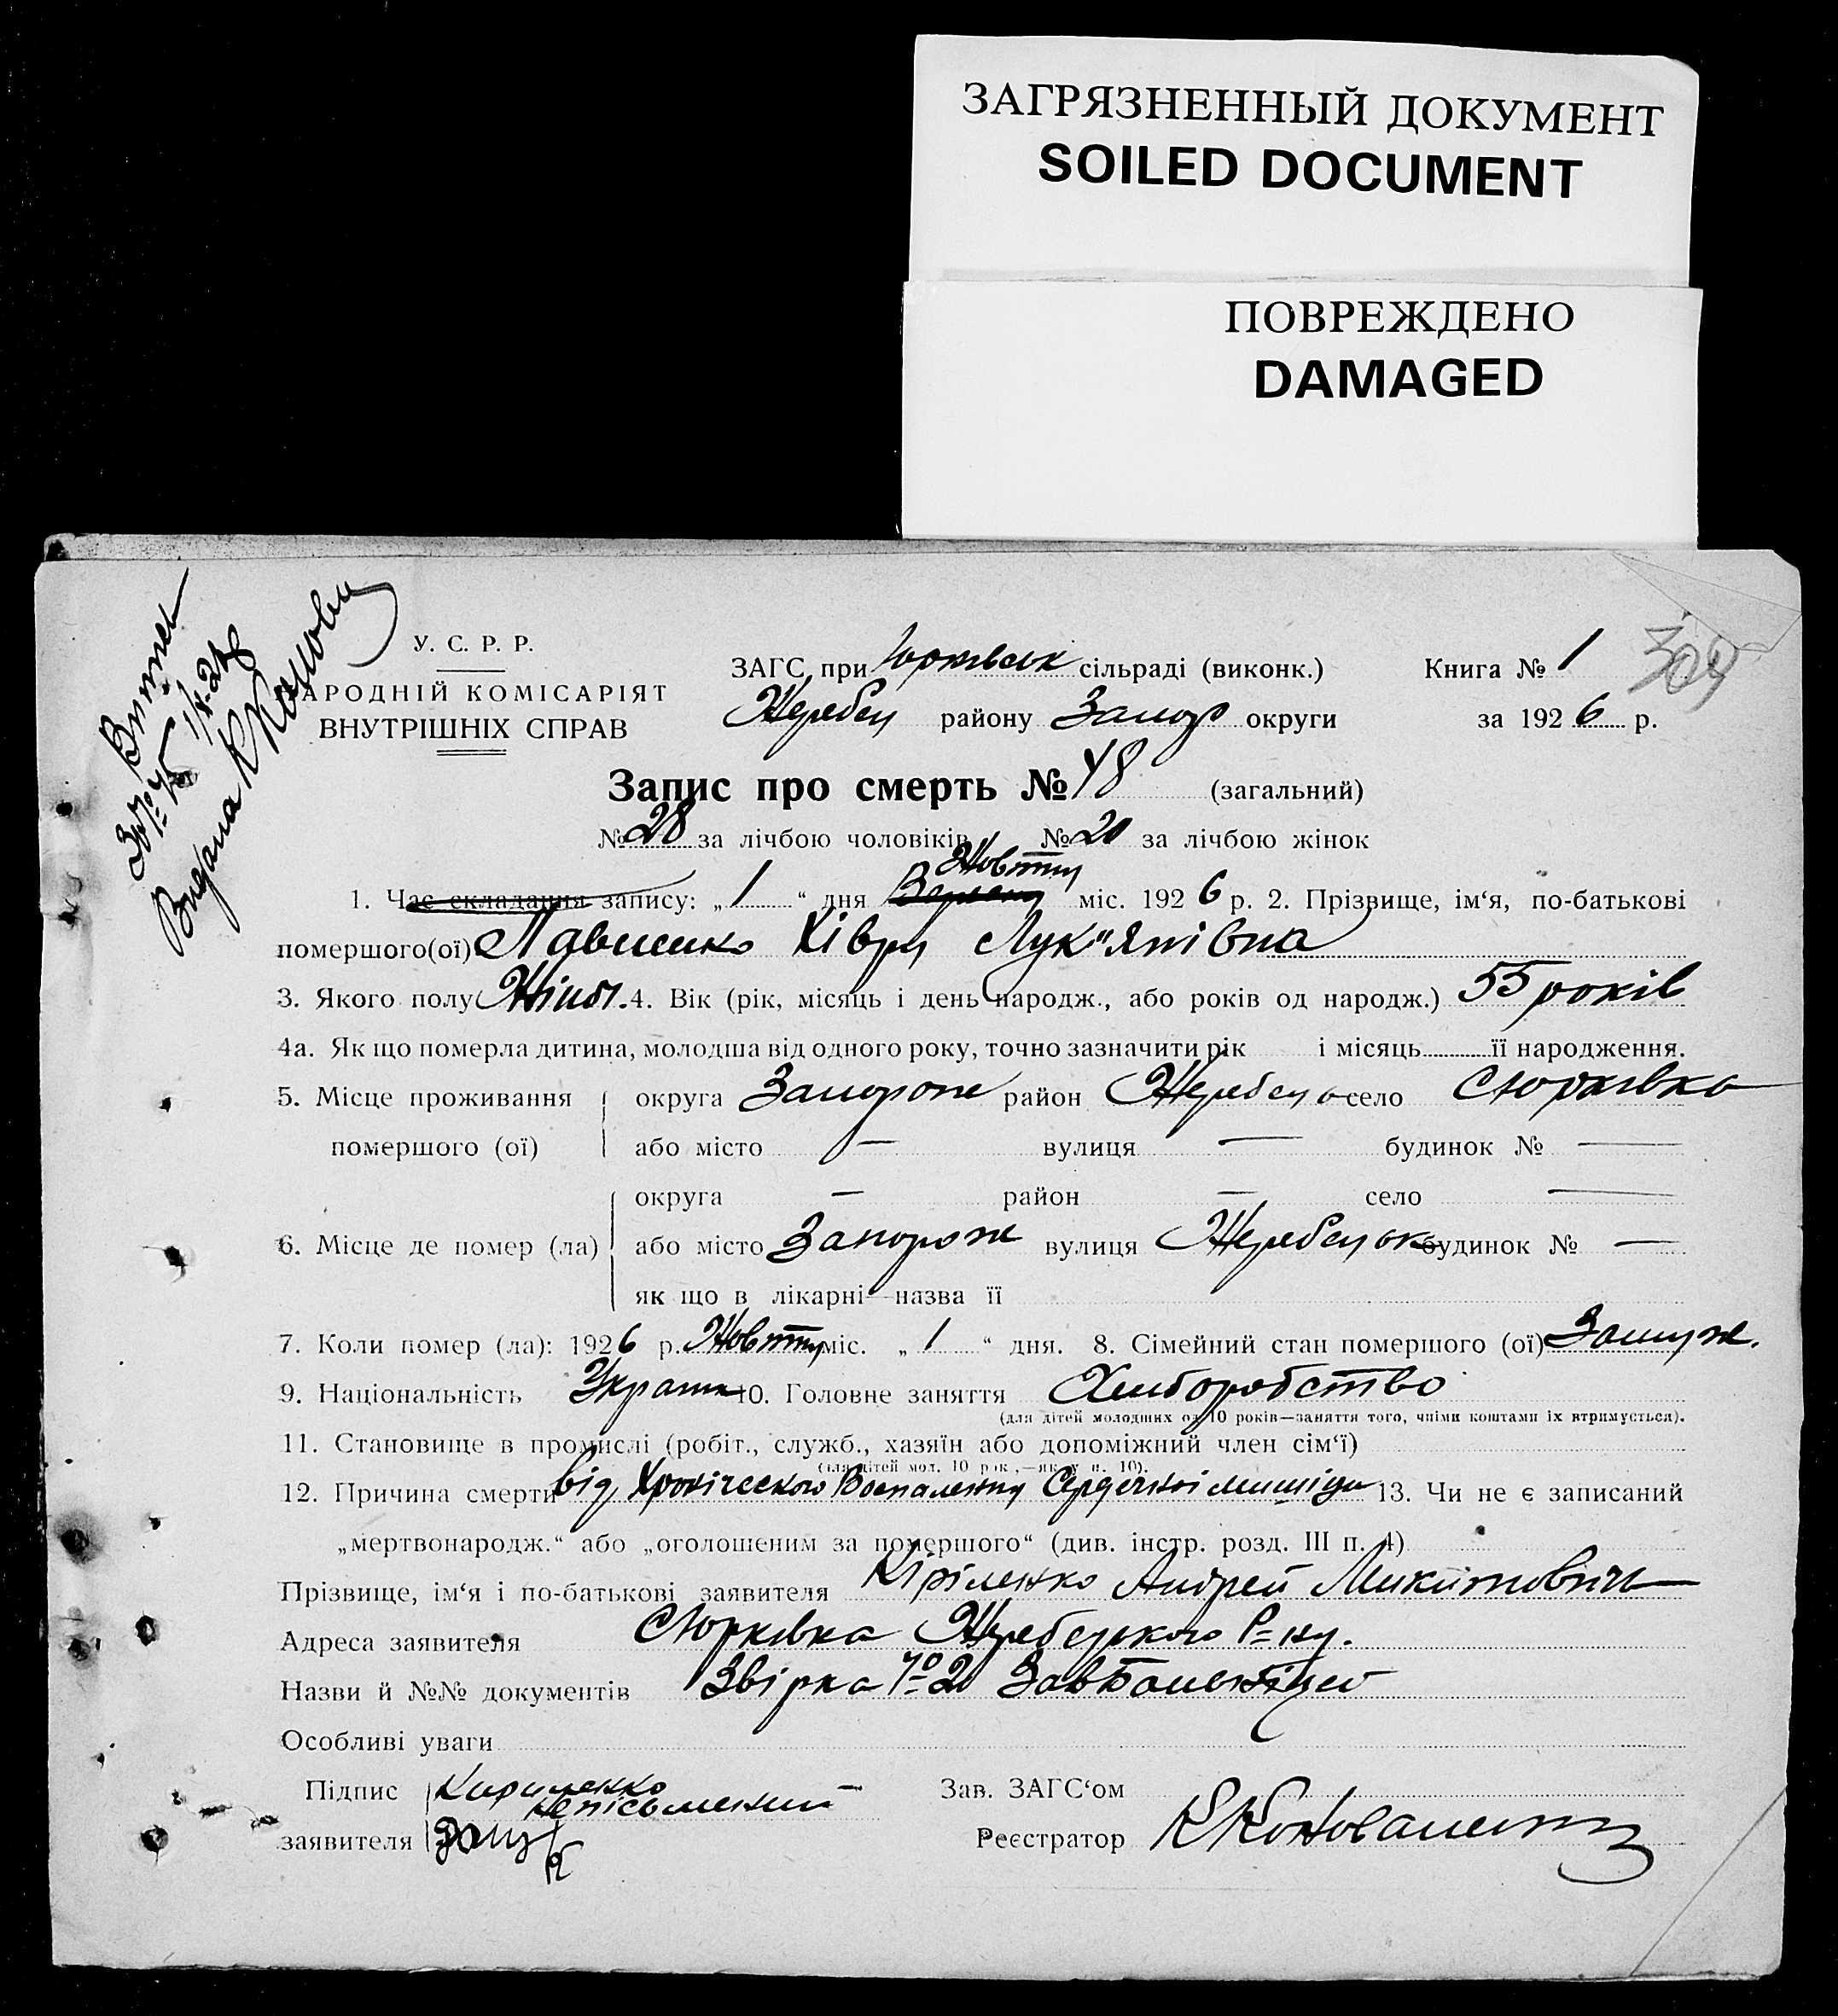 ЗАГРЯЗНЕННЫЙ ДОКУМЕНТ
SOILED DOCUMENT
ПОВРЕЖДЕНО
DAMAGED
Витяг
Видана
У. С. Р. Р.
АРОДНІЙ КОМІСАРІЯТ
ВНУТРІШНІХ СПРАВ
ЗАГС при Юрківськ сільраді (виконк.)
Жеребец району Запор округи
Книга № 1
309
за 1926 р.
Запис про смерть № 48 (загальний)
№ 28 за лічбою чоловіків № 20 за лічбою жінок
Жовтня
1. Час складання запису: „1“ дня міс. 1926 р. 2. Прізвище, ім‘я, по-батькові
помершого(ої) Хівря Лук"янівна
3. Якого полу Жіноч. 4. Вік (рік, місяць і день народж., або років од народж.) 55 років
4а. Як що померла дитина, молодша від одного року, точно зазначити рік і місяць її народження.
5. Місце проживання помершого (ої) округа Запорож район село Юрківка
або місто — вулиця — будинок № —
6. Місце де помер (ла) округа — район — село —
або місто Запорож вулиця будинок № —
як що в лікарні—назва її
7. Коли помер (ла): 1926 р. Жовтня міс. „1“ дня. 8. Сімейний стан помершого (ої) Замуж.
9. Національність Україн 10. Головне заняття Хліборобство
(для дітей молодших од 10 років—заняття того, чиїми коштами їх втримується).
11. Становище в промислі (робіт., служб., хазяїн або допоміжний член сім‘ї)
(для дітей мол. 10 рок,—як у п. 10).
12. Причина смерти від Хронического Воспаления Сердечної мишіци 13. Чи не є записаний
„мертвонародж.“ або „оголошеним за помершого“ (див. інстр. розд. III п. 4)
Прізвище, ім‘я і по-батькові заявителя Кіріленко Андрей Микитович
Адреса заявителя Юрківка Жеребецького Р-ну.
Назви й №№ документів № 20
Особливі уваги
Підпис заявителя Кириленко
неписьменний
Зав. ЗАГС‘ом
Реєстратор К Коноваленко